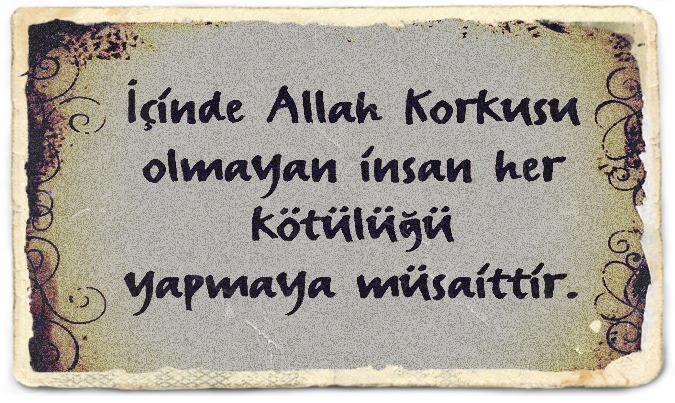 İçinde Allah Korkusu
olmayan insan her
kötülüğü
yapmaya müsaittir.